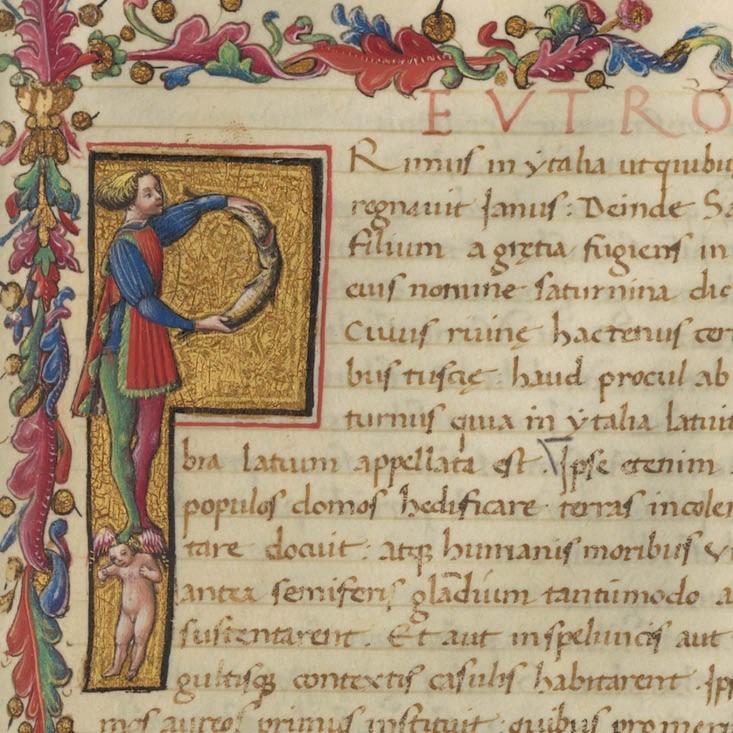 EVTRO
PRimus in ytalia ut quibu
regnauit Ianus: Deinde Sa
filium a gręcia fugiens in
eius nomine saturnina dic
Cuius ruinę hactenus cer
bus tuscię haud procul ab
turnus quia in ytalia latuit
bra latium appellata est. Ipse etenim
populos domos hedificare terras incoler
tare docuit: atqꝫ humanis moribus vi
antea semiferis glādium tantūmodo a
sustentarent. Et aut in speluncis aut
gultisqꝫ contextis casulis habitarent. Ip
mos aureos primus instituit: quibus pro meri